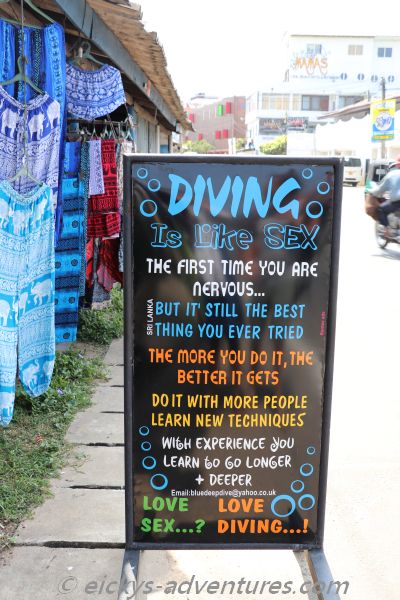 MAMAS
DIVING
Is Like SEX
THE FIRST TIME YOU ARE
NERVOUS...
SRI LANKA
BUT IT' STILL THE BEST
THING YOU EVER TRIED
THE MORE YOU DO IT, THE
BETTER IT GETS
DO IT WITH MORE PEOPLE
LEARN NEW TECHNIQUES
WITH EXPERIENCE YOU
LEARN TO GO LONGER
+ DEEPER
Email:bluedeepdive@yahoo.co.uk
LOVE LOVE
SEX...? DIVING...!
© eickys-adventures.com